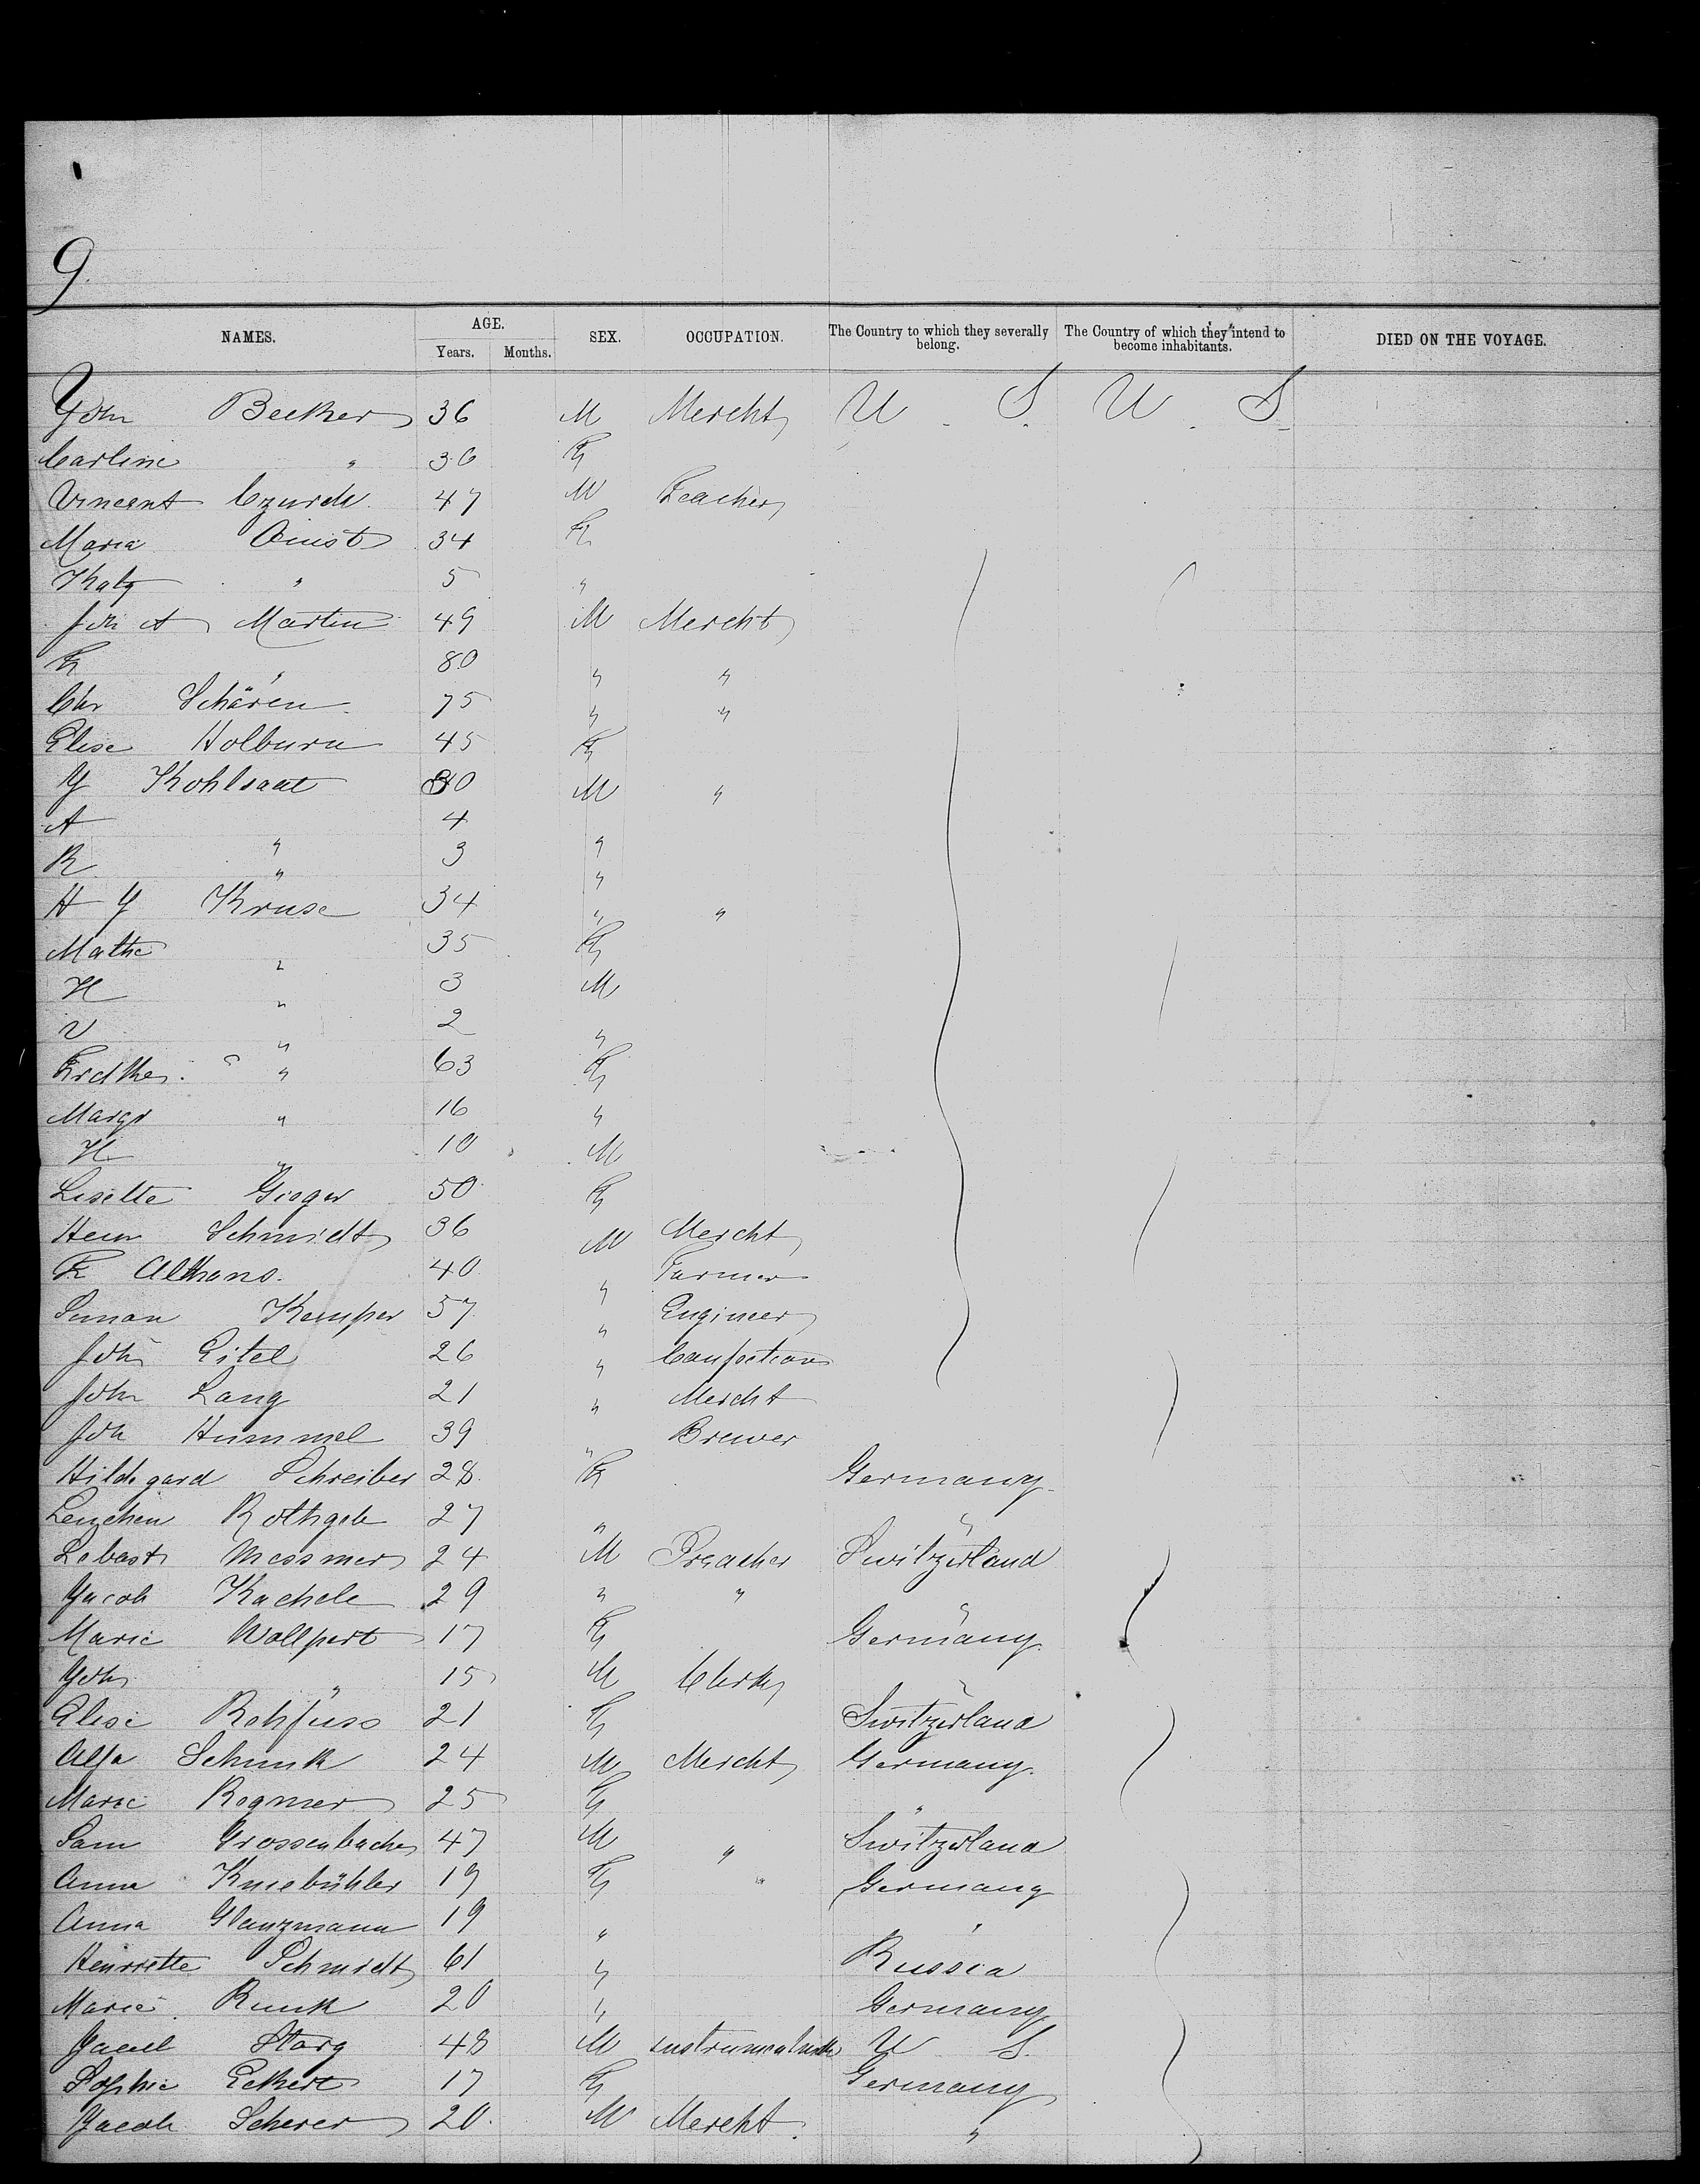 9.
NAMES. AGE. Years. Months. SEX. OCCUPATION. The Country to which they severally belong. The Country of which they intend to become inhabitants. DIED ON THE VOYAGE.
John Becker 36 M Mercht U. S. U. S.
Carline " 36 F
Vincent 47 M Teacher
Maria 34 F
Katy " 5 "
Joh A Martin 49 M Mercht
F " 80 " "
Chr Schären 75 " "
Elise Holburn 45 F
J Kohlsaat 30 M "
A " 4 "
R " 3 "
H J Kruse 34 " "
Mathe " 35 F
H " 3 M
V " 2 "
" 63 F
Margr " 16 "
H " 10 M
Lisette 50 F
Hein Schmidt 36 M Mercht
F Althans. 40 " Farmer
Simon Kemper 57 " Engineer
Joh Eitel 26 "
John Lang 21 " Mercht
Joh Hummel 39 " Brewer
Hildegard Schreiber 28 F Germany
Lenchen Rothgeb 27 " "
Sebast Messmer 24 M Preacher Switzerland
Jacob Kachele 29 " " "
Marie Wollpert 17 F Germany
Joh " 15 M Clerk "
Elise Rohfuss 21 F Switzerland
Alfr Schunk 24 M Mercht Germany.
Marie Rogmer 25 F "
Sam Grossenbacher 47 M " Switzerland
Anna Kniebühler 19 F " Germany
Anna Glanzmann 19 " "
Henriette Schmidt 61 " Russia
Marie Runk 20 " Germany
Storg 48 M U S.
Sophie Eckert 17 F Germany
Jacob Scherer 20. M Mercht. "